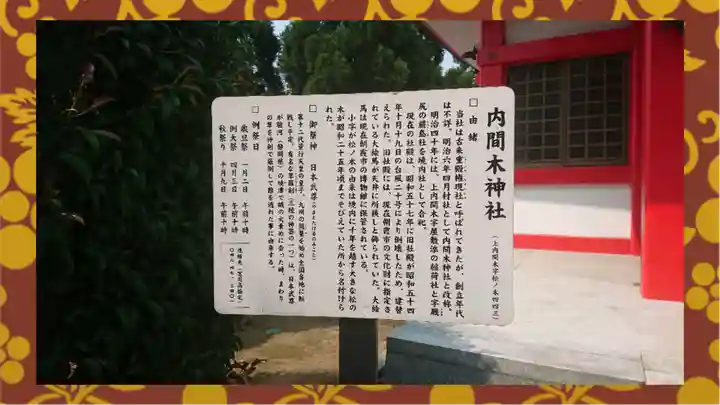 内間木神社
（上内間木字松ノ木四四三）
□ 由緒
当社は古来重殿権現社と呼ばれてきたが、創立年代
は不詳。明治六年四月村社として内間木神社と改称。
明治四十年には、上内間木字屋敷添の稲荷社と字戦
尻の厳島社を境内社として合祀。
現在の社殿は、昭和五十七年に旧社殿が昭和五十四
年十月十九日の台風二十号により倒壊したため、建替
えられた。旧社殿には、現在朝霞市の文化財に指定さ
れている大絵馬が天井に所狭しと飾られていた。大絵
馬は現在朝霞市の博物館に保管されている。
小字が松ノ木の由来は境内に千年を越す大きな松の
木が昭和二十五年頃までそびえていた所から名付けら
れた。
□ 御祭神 日本武尊（やまとたけるのみこと）
第十二代景行天皇の皇子。九州の熊襲を始め全国各地に転
戦し平定。有名な草薙剣（三種の神器の一つ）は、日本武尊
が駿河（静岡県）の焼津で賊の火責めに会った時、まわり
の草を神剣で薙倒して難を逃れた事に由来する。
□ 例祭日
歳旦祭 一月二日 午前十時
例大祭 四月三日 午前十時
秋祭り 十月九日 午前十時